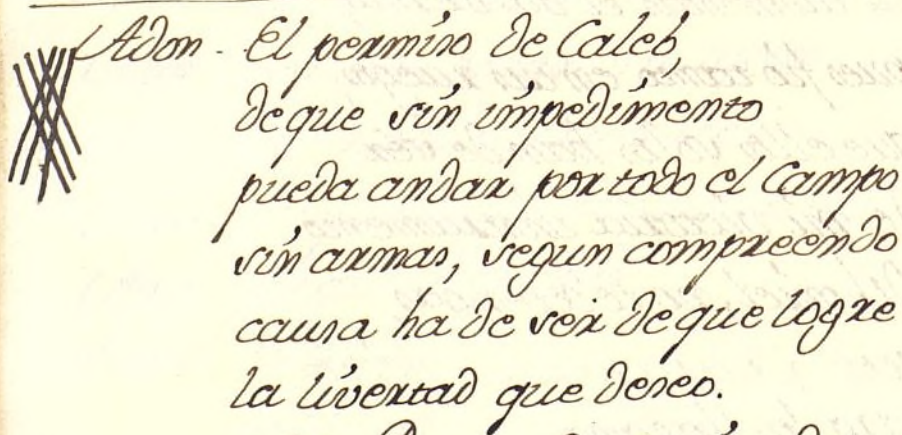 Adon - El permiso de Caleb,
de que sin impedimento
pueda andar por todo el Campo
sin armas, segun compreendo
causa ha de ser de que logre
la livertad que deseo.